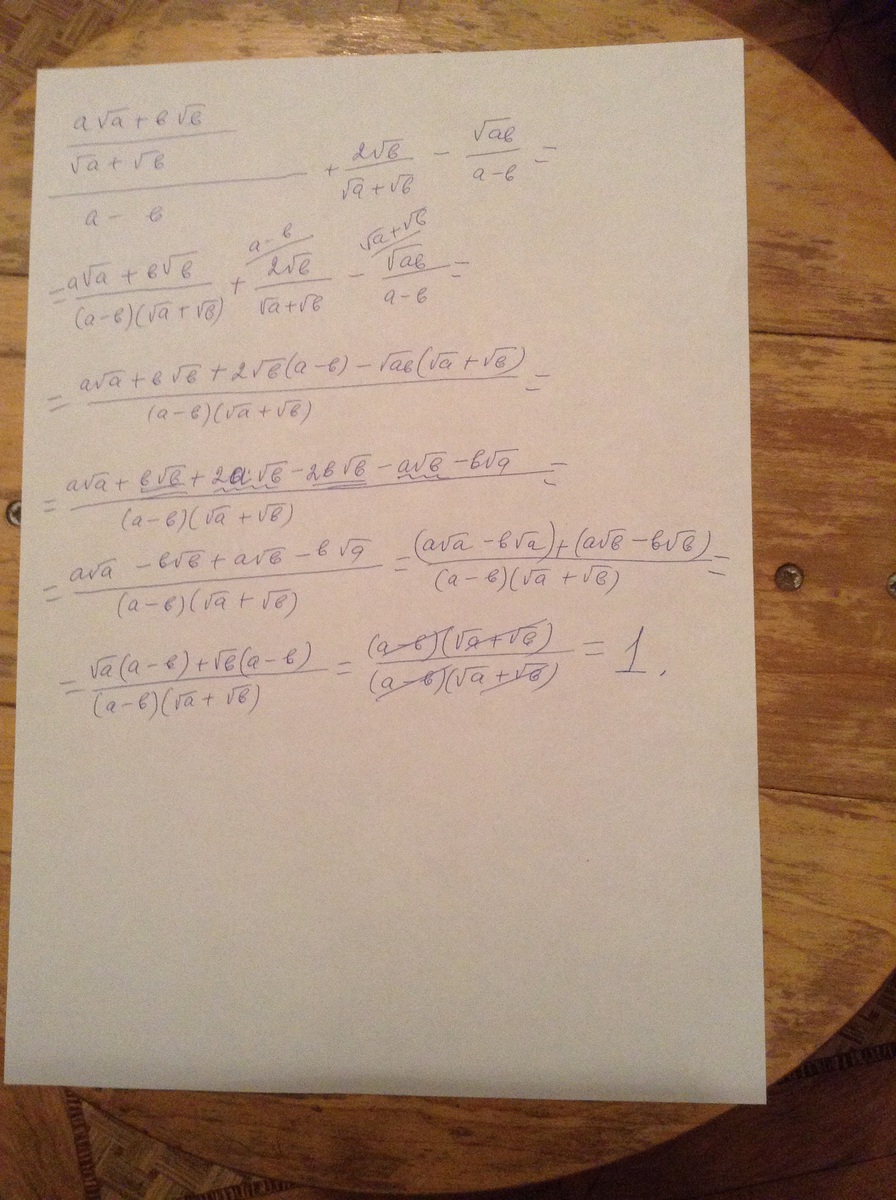 a√a + в√в
√a + √в
a - в
+ 2√в / √a + √в - √aв / a - в =
= a√a + в√в / (a-в)(√a+√в) + a-в / 2√в / √a+√в - √a+√в / √aв / a-в =
= a√a + в√в + 2√в(a-в) - √aв(√a+√в) / (a-в)(√a+√в) =
= a√a + в√в + 2a√в - 2в√в - a√в - в√a / (a-в)(√a+√в) =
= a√a - в√в + a√в - в√a / (a-в)(√a+√в) = (a√a - в√a) + (a√в - в√в) / (a-в)(√a+√в) =
= √a(a-в) + √в(a-в) / (a-в)(√a+√в) = (a-в)(√a+√в) / (a-в)(√a+√в) = 1.